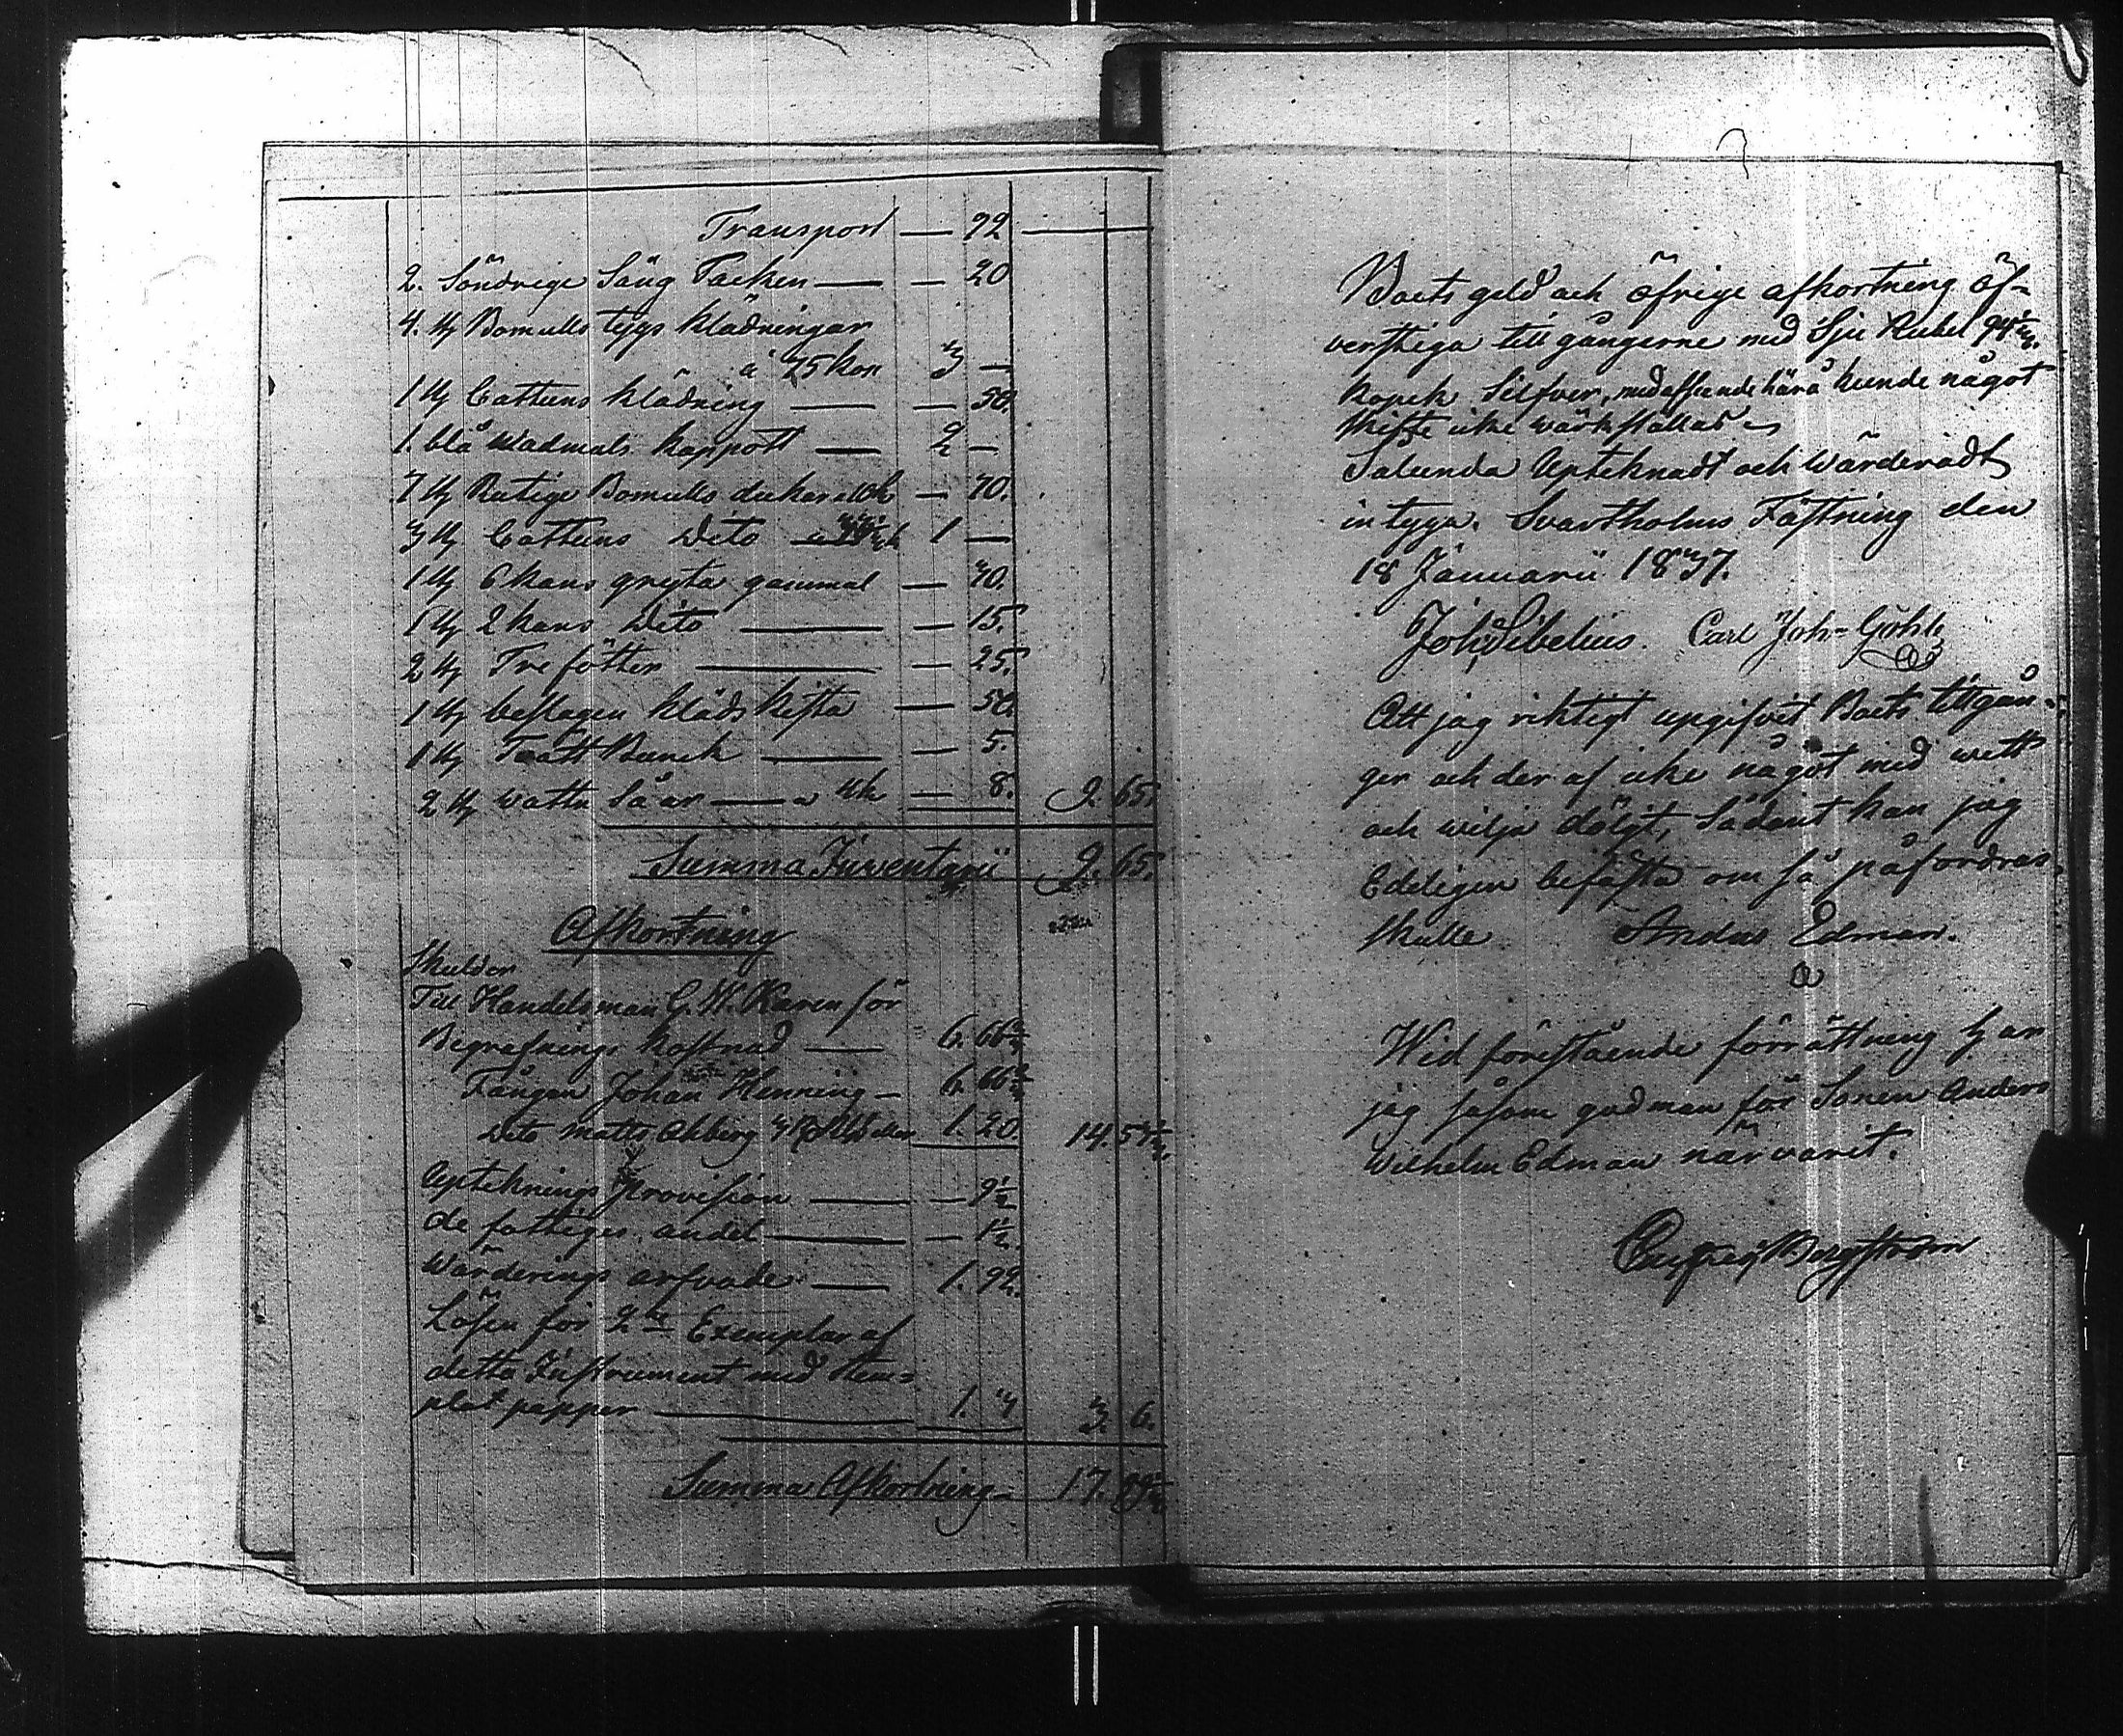 Transport — 92 —
2. Söndrige Säng Täcken — — 20
4. st Bomulls tygs klädningar
à 75 kop 3 —
1 st Cattuns klädning — — 50.
1. blå Wadmals kappott — 2 —
7 st Rutige Bomulls dukar a 10k — 70.
3 st Cattuns Dito 1 —
1 st 6 kans gryta gammal — 40.
1 st 2 kans Dito — — 15.
2 st Tre fötter — — 25.
1 st beslagen kläds kista — 50.
1 st Tvätt Bunck — — 5.
2 st watten Såar — a 4k — 8. 9. 65.
Summa Inventarii 9. 65.
Afkortning
Skulder
Till Handelsman G. W. för
Begrafnings kostnad — 6. 66 2/3
Fången Johan Henning — 6. 66 2/3
Dito Matts Åhberg 1. 20. 14. 53 1/3.
Uptecknings Provision — — 9 1/2
de fattiges andel — — 1/2.
Wärderings arfvode — 1. 92.
Lösen för 2ne Exemplar af
detta Instrument med stem=
plat papper — 1. 4 3. 6.
Summa Afkortning 17. 59 1/3
Boets geld och öfrige afkortning öf=
verstiga tillgångerne med Sju Rubel 94 1/3.
kopek Silfver, med afseende härå kunde något
skifte icke wärkställas
Sålunda Uptecknadt och Wärderadt
intyga. Svartholms Fästning den
18 Januarii 1837.
Joh. Sibelius. Carl Joh=
Att jag riktigt upgifvit Boets tillgån=
gar och der af icke något med wett
och wilja döljt, sådant kan jag
Edeligen befästa om så påfordras
skulle Anders Edman.
Wid förestående förrättning har
jag såsom gudman för Sonen Anders
Wilhelm Edman närvarit.
Bergström